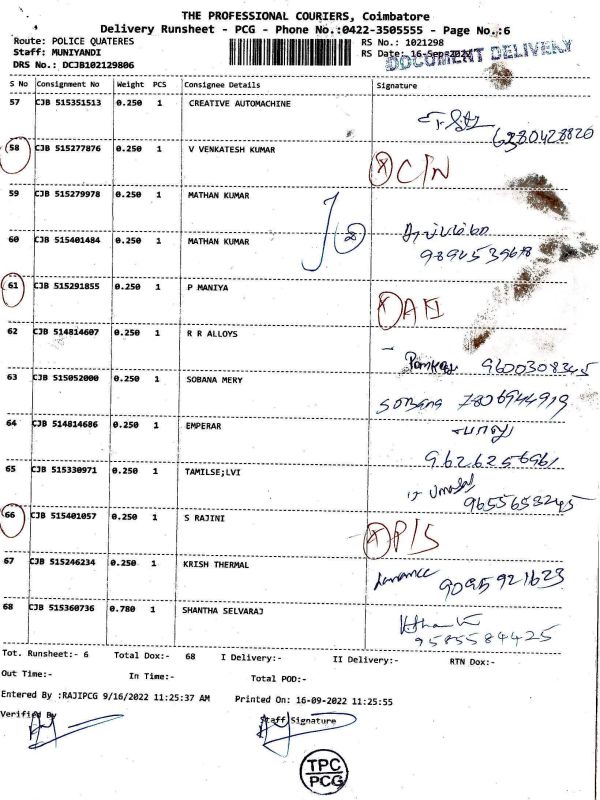 THE PROFESSIONAL COURIERS, Coimbatore
Delivery Runsheet - PCG - Phone No.:0422-3505555 - Page No.:6
Route: POLICE QUATERES RS No.: 1021298
Staff: MUNIYANDI RS Date: 16-Sep-2022 DOCUMENT DELIVERY
DRS No.: DCJB102129806
S No Consignment No Weight PCS Consignee Details Signature
57 CJB 515351513 0.250 1 CREATIVE AUTOMACHINE
6280428820
58 CJB 515277876 0.250 1 V VENKATESH KUMAR X C/N
59 CJB 515279978 0.250 1 MATHAN KUMAR
60 CJB 515401484 0.250 1 MATHAN KUMAR 2
9894539678
61 CJB 515291855 0.250 1 P MANIYA X
62 CJB 514814607 0.250 1 R R ALLOYS
9600308345
63 CJB 515052000 0.250 1 SOBANA MERY
Sobana 7806944919
64 CJB 514814686 0.250 1 EMPERAR
பாலு
9626256961
65 CJB 515330971 0.250 1 TAMILSE;LVI
9655653245
66 CJB 515401057 0.250 1 S RAJINI X P/S
67 CJB 515246234 0.250 1 KRISH THERMAL
9095921623
68 CJB 515360736 0.780 1 SHANTHA SELVARAJ
9585584425
Tot. Runsheet:- 6 Total Dox:- 68 I Delivery:- II Delivery:- RTN Dox:-
Out Time:- In Time:- Total POD:-
Entered By :RAJIPCG 9/16/2022 11:25:37 AM Printed On: 16-09-2022 11:25:55
Verified By Staff Signature
TPC
PCG